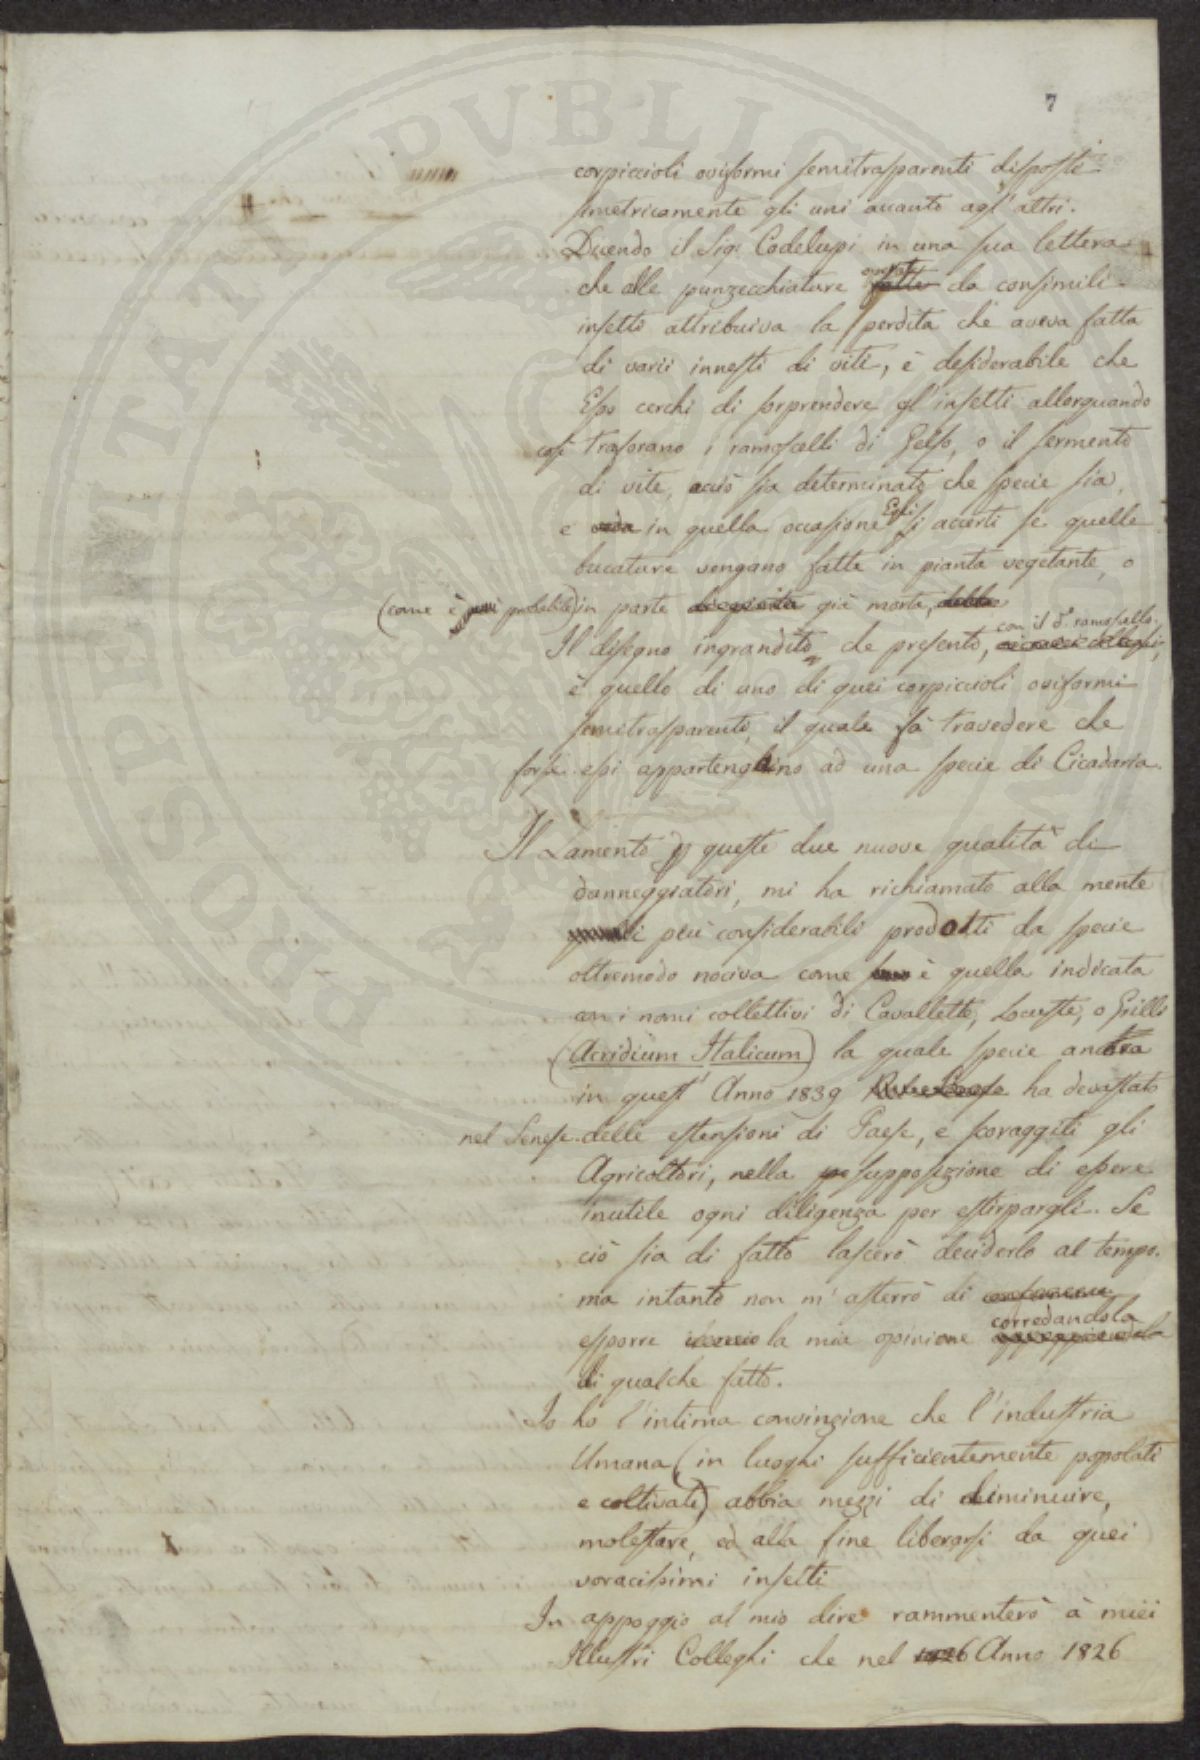 7
corpiccioli oviformi semitrasparenti disposti
simetricamente gli uni accanto agl'altri.
Dicendo il Sig. Codelupi in una sua lettera
che alle punzecchiature operate fatte da consimili
insetti attribuiva la perdita che aveva fatta
di varii innesti di viti, è desiderabile che
Esso cerchi di sorprendere gl'insetti allorquando
così traforano i ramoscelli di Gelso, o il sermento
di vite, acciò sia determinato che specie sia,
e in quella occasione Egli si accerti se quelle
bucature vengano fatte in pianta vegetante, o
(come è probabile) in parte già morta,
Il disegno ingrandito, che presento, con il d.° ramoscello
è quello di uno di quei corpiccioli oviformi
semitrasparenti, il quale fà travedere che
forse essi appartenghino ad una specie di Cicadaria.
Il Lamento p queste due nuove qualità di
danneggiatori, mi ha richiamato alla mente
quelli più considerabili prodotti da specie
oltremodo nociva come è quella indicata
con i nomi collettivi di Cavallette, Locuste, o Grilli
(Acridium Italicum) la quale specie ancora
in quest'Anno 1839 ha devastato
nel Senese delle estensioni di Paese, e scoraggiti gli
Agricoltori, nella supposizione di essere
inutile ogni diligenza per estirpargli. Se
ciò sia di fatto lascerò deciderlo al tempo.
ma intanto non m'asterrò di
esporre la mia opinione corredandola
di qualche fatto.
Io ho l'intima convinzione che l'industria
Umana (in luoghi sufficientemente popolati
e coltivati) abbia mezzi di diminuire,
molestare, ed alla fine liberarsi da quei
voracissimi insetti
In appoggio al mio dire rammenterò à miei
Illustri Colleghi che nel 1826 Anno 1826
PROSPERITATI PVBLICAE